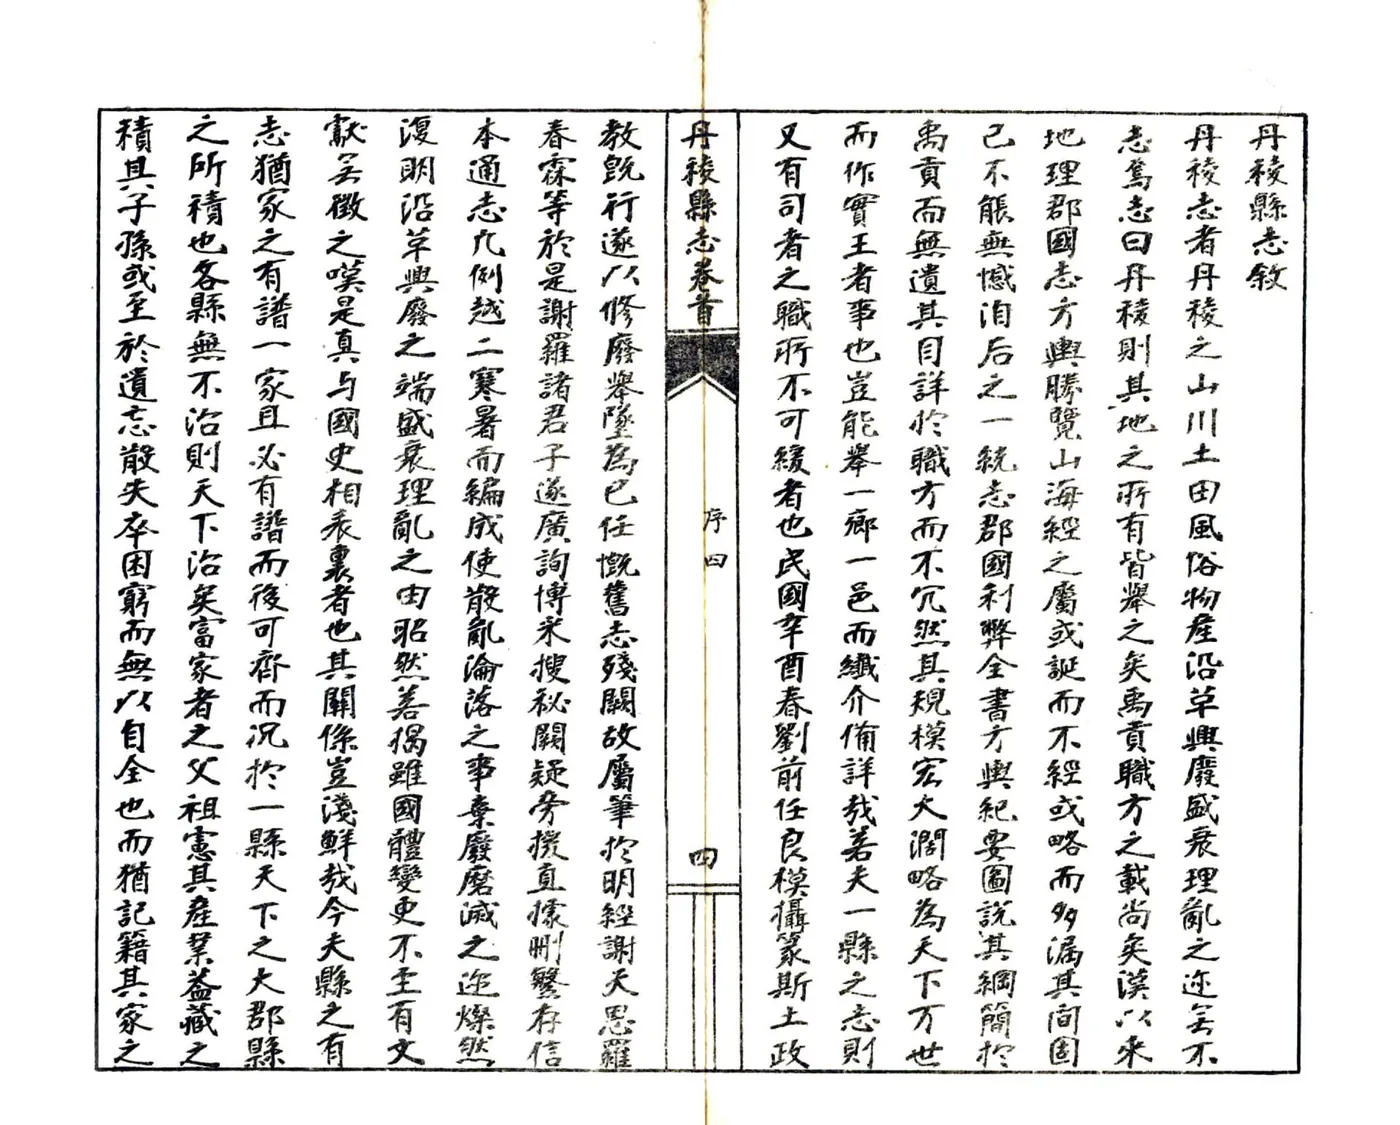 丹稜縣志敘
丹稜志者丹稜之山川土田風俗物産沿革興廢盛衰理亂之迹無不
志焉志曰丹稜則其地之所有皆舉之矣禹貢職方之載尚矣漢以來
地理郡國志方輿勝覽山海經之屬或誕而不經或略而多漏其間固
已不能無憾洎后之一統志郡國利弊全書方輿紀要圖說其綱簡於
禹貢而無遺其目詳於職方而不冗然其規模宏大濶略為天下万世
而作實王者事也豈能舉一鄉一邑而纖介備詳哉若夫一縣之志則
又有司者之職所不可緩者也民國辛酉春劉前任良模攝篆斯土政
丹稜縣志卷首
序曰
四
教旣行遂以修廢舉墜為己任慨舊志殘闕故屬筆於明經謝天恩羅
春霖等於是謝羅諸君子遂廣詢博釆搜祕闕疑旁援直據刪繁存信
本通志凡例越二寒暑而編成使散亂淪落之事棄廢磨滅之迹燦然
復明沿革興廢之端盛衰理亂之由昭然若揭雖國體變更不至有文
獻無徵之嘆是真与國史相表裏者也其關係豈淺鮮哉今夫縣之有
志猶家之有譜一家且必有譜而後可齊而況於一縣天下之大郡縣
之所積也各縣無不治則天下治矣富家者之父祖憲其産業葢藏之
積其子孫或至於遺忘散失卒困窮而無以自全也而猶記籍其家之